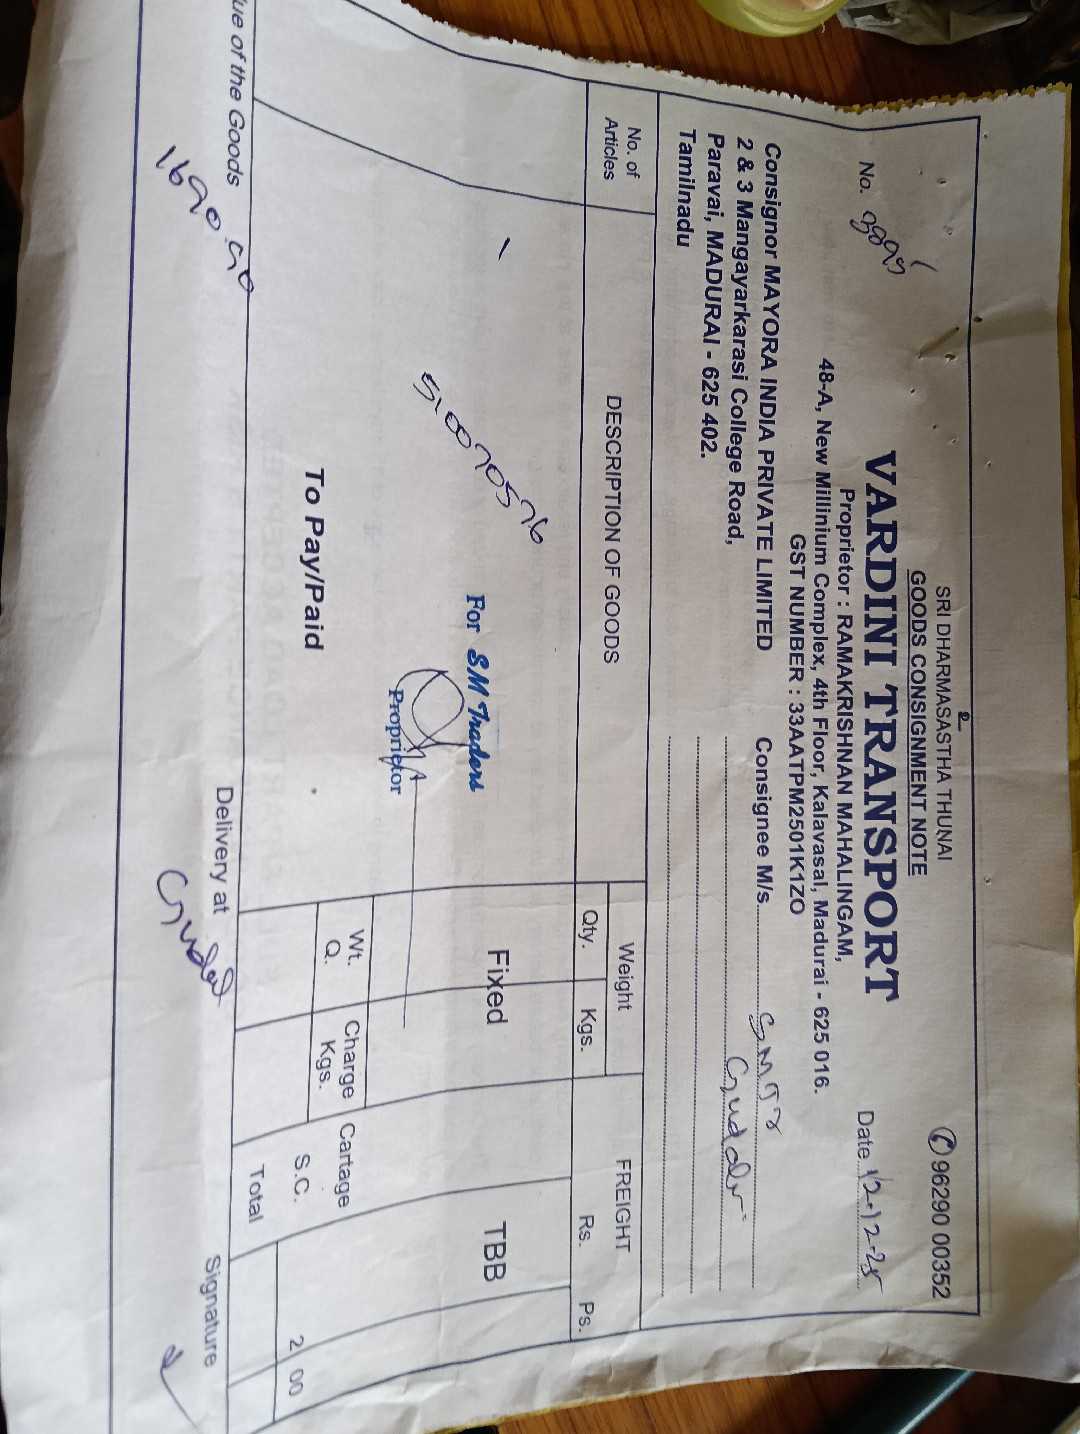 SRI DHARMASASTHA THUNAI
GOODS CONSIGNMENT NOTE
✆ 96290 00352
VARDINI TRANSPORT
No. 3895
Proprietor : RAMAKRISHNAN MAHALINGAM,
Date 12-12-25
48-A, New Millinium Complex, 4th Floor, Kalavasal, Madurai - 625 016.
GST NUMBER : 33AATPM2501K1ZO
Consignor MAYORA INDIA PRIVATE LIMITED
2 & 3 Mangayarkarasi College Road,
Paravai, MADURAI - 625 402.
Tamilnadu
Consignee M/s.
No. of Articles
DESCRIPTION OF GOODS
Weight
Qty. Kgs.
FREIGHT
Rs. Ps.
Fixed
TBB
For SM Traders
Proprietor
To Pay/Paid
Wt. Q.
Charge Kgs.
Cartage
S.C. 2 00
Total
ue of the Goods
Delivery at
Signature